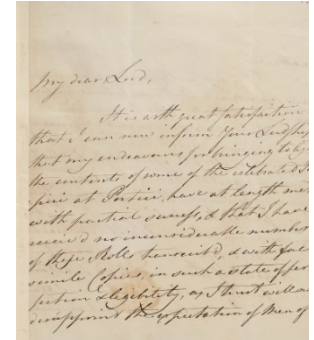 My dear Lord,
It is with great satisfaction
that I can now inform Your Lordship
that my endeavours for bringing to
the contents of some of the celebrated
at Portici, have at length met
with partial success, & that I have
receiv'd no inconsiderable number
of these Rolls transcrib'd, & with fac
simile Copies, in such a state of per
fection & legibility, as I trust will
disappoint the expectation of Men of